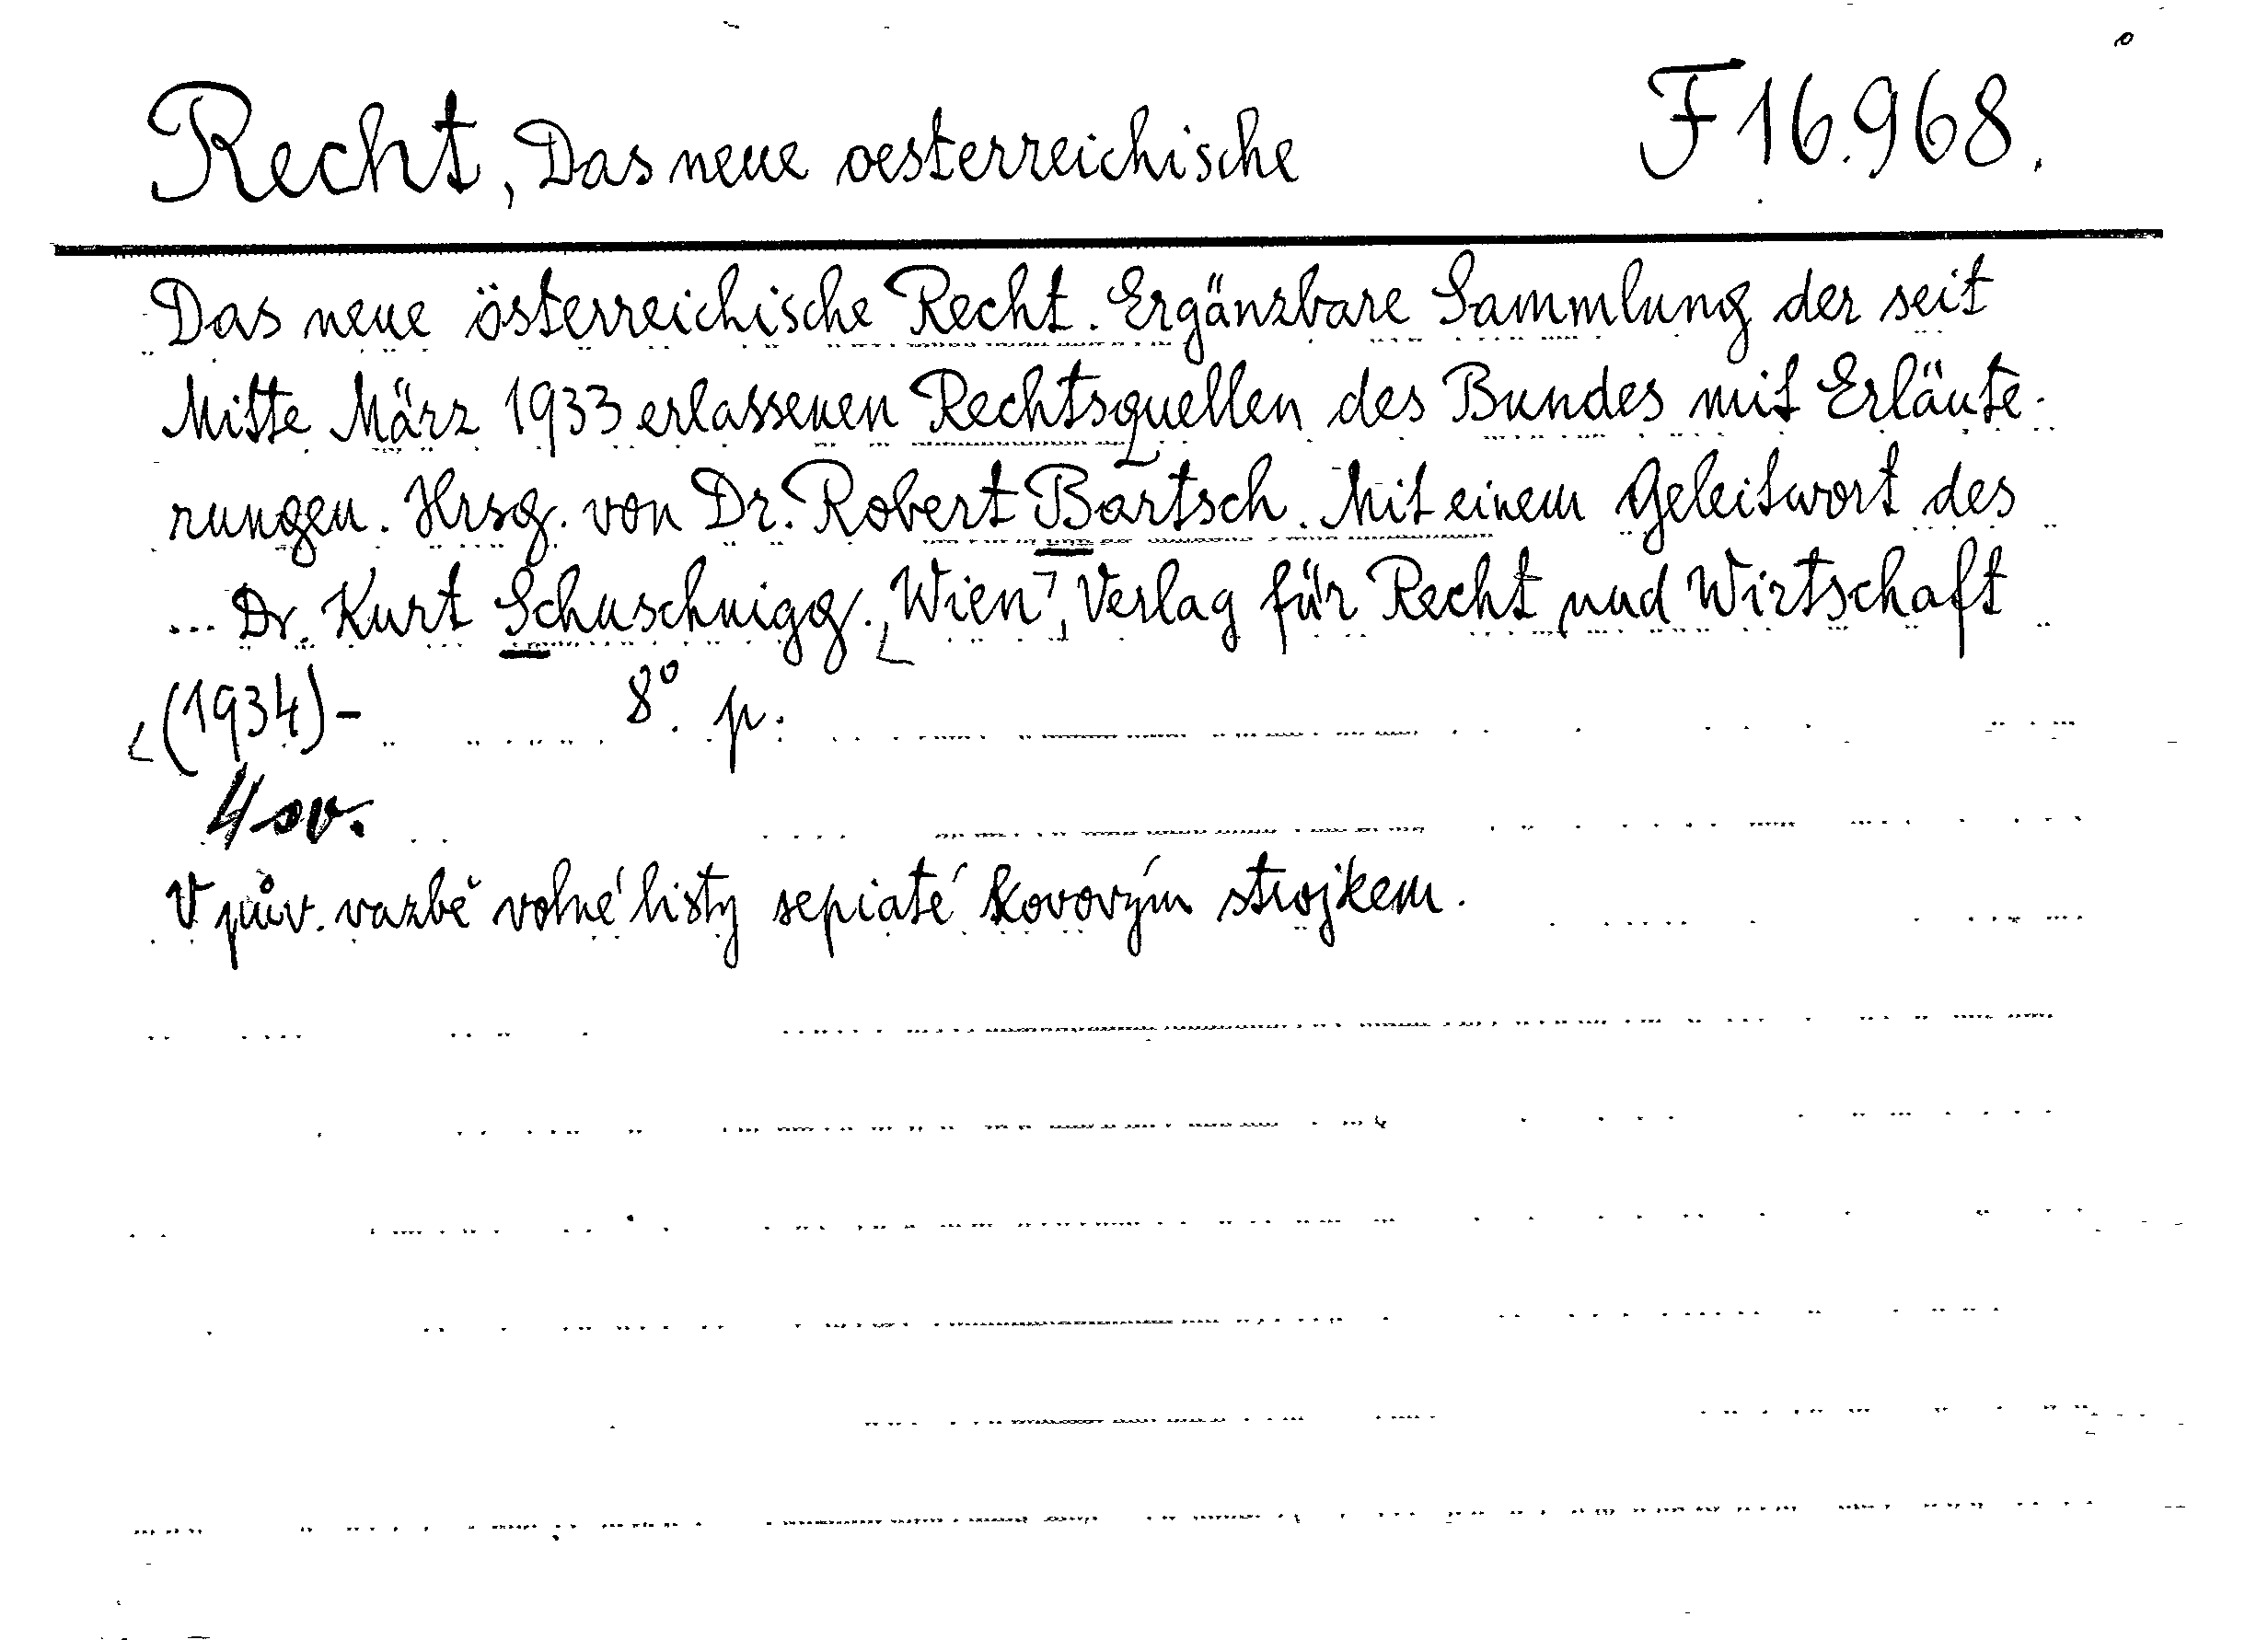 Recht, Das neue oesterreichische F 16.968.
Das neue österreichische Recht. Ergänzbare Sammlung der seit
Mitte März 1933 erlassenen Rechtsquellen des Bundes mit Erläute-
rungen. Hrsg. von Dr. Robert Bartsch. Mit einem Geleitwort des
... Dr. Kurt Schuschnigg. [Wien], Verlag für Recht und Wirtschaft
(1934)- 8°. p.
4 sv.
V pův. vazbě volné listy sepiaté kovovým strojkem.